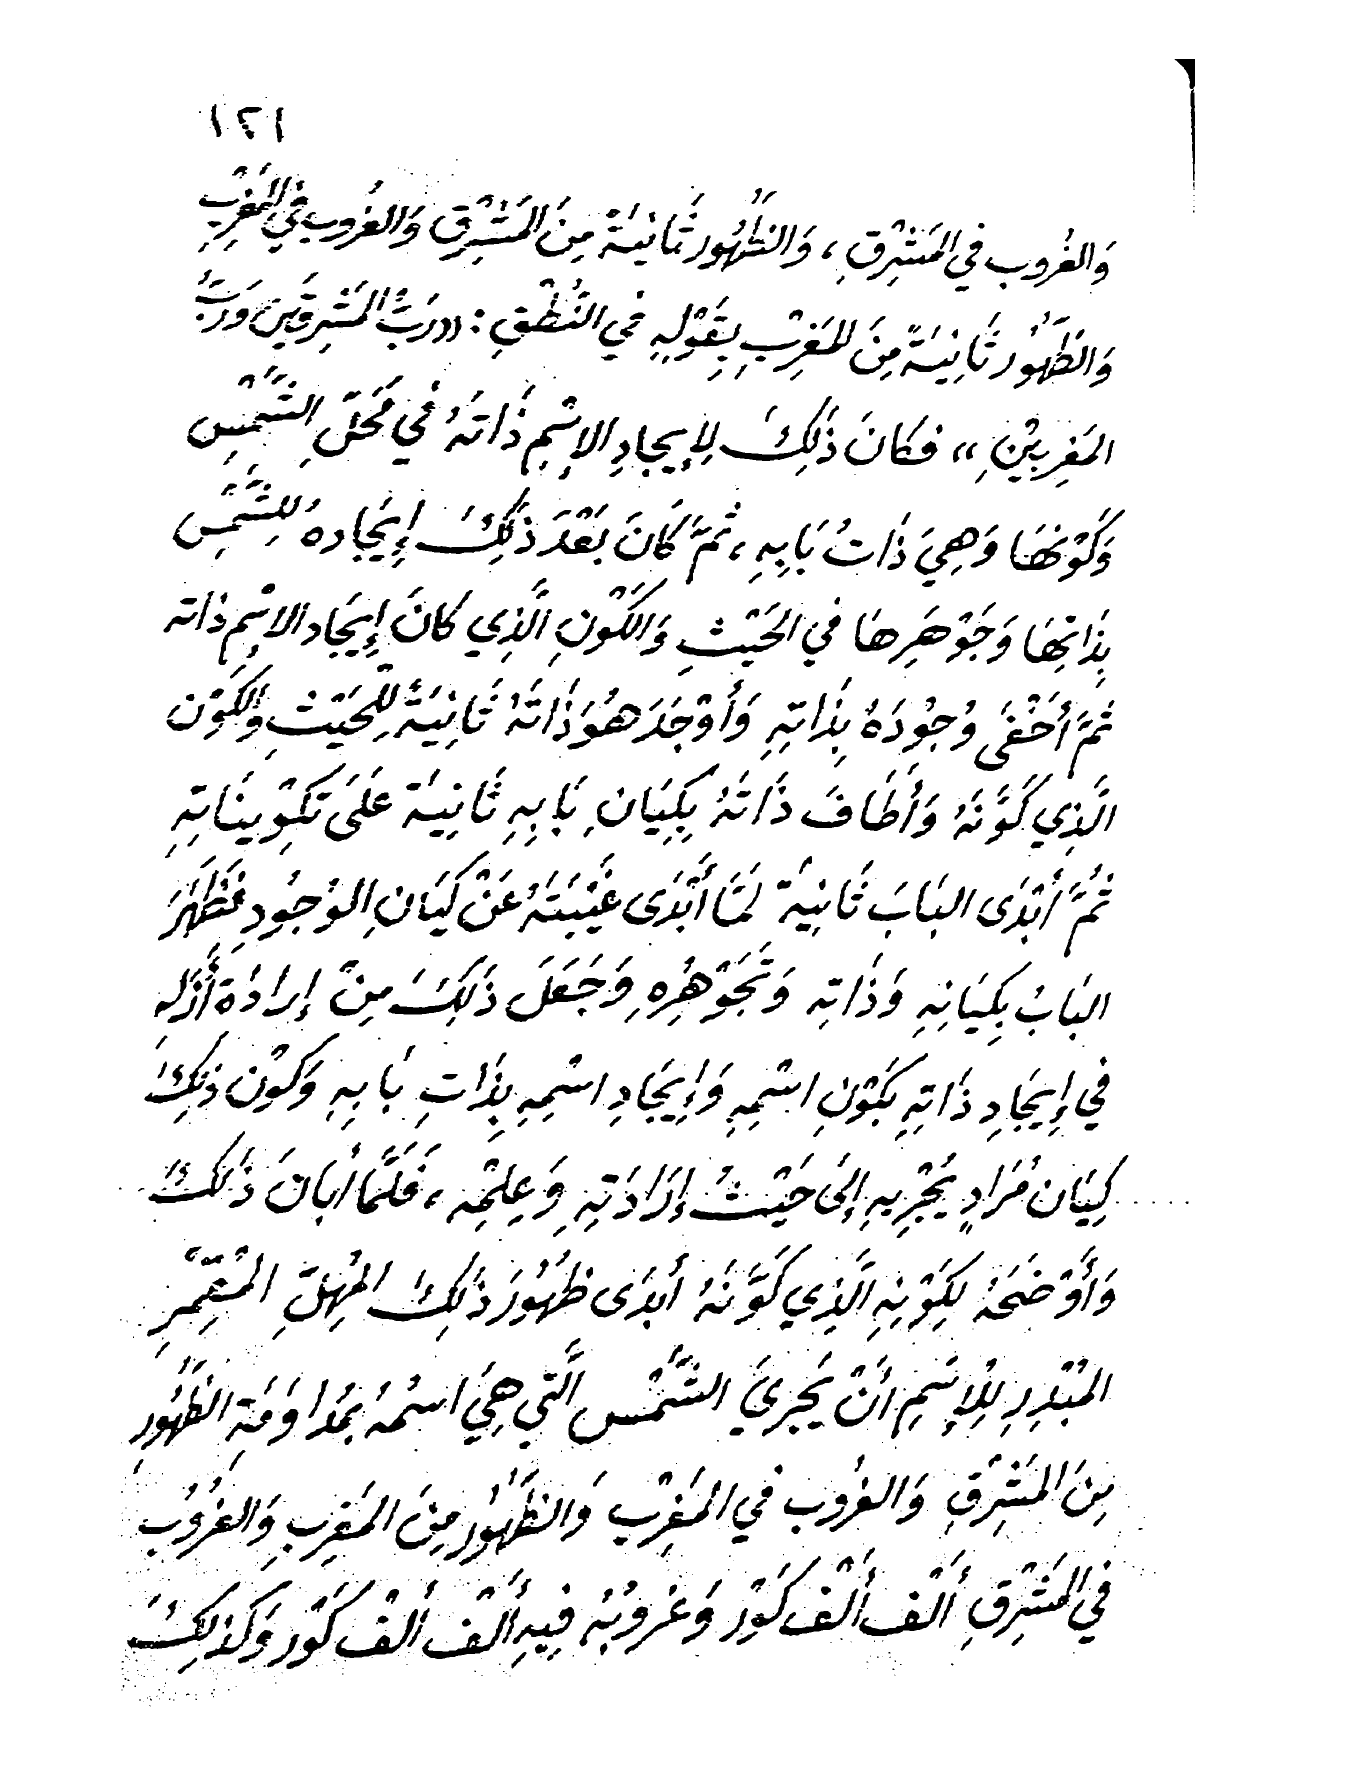 ١٢١
وَالغُروب في المَشرِقِ ، وَالظُّهُور ثَانِيَةً مِنَ المَشْرِقِ وَالغُروب في المَغرِبِ
وَالظُّهُور ثَانِيَةً مِنَ المَغرِبِ بِقَوْلِهِ في النُّطْقِ : «رَبُّ المَشْرِقَيْنِ وَرَبُّ
المَغرِبَيْنِ» فكانَ ذَلِكَ لِإِيجادِ الإِسْمِ ذَاتَهُ في مَحَلِّ الشَّمْسِ
وَكَوْنهَا وَهِيَ ذَاتُ بَابِهِ ، ثُمَّ كَانَ بَعْدَ ذَلِكَ إِيجَادهُ للشَّمْسِ
بِذَاتِهَا وَجَوْهَرِهَا في الحَيْثِ وَالكَوْنِ الَّذِي كَانَ إِيجَاد الاِسْمِ ذاته
ثُمَّ أَخْفَى وُجُودَهُ بِذَاتِهِ وَأَوْجَدَ هُوَ ذَاتَهُ ثَانِيَةً لِلحَيْثِ وَالكَوْن
الَّذِي كَوَّنَهُ وَأَطَافَ ذَاتَهُ بِكِيَانِ بَابِهِ ثَانِيَة عَلَى تَكوِينَاتِهِ
ثُمَّ أَبْدَى البَابَ ثَانِيَةً لَمَّا أَبْدَى غَيْبَتَهُ عَنْ كِيَانِ الوُجُودِ فَظَهَرَ
البَابُ بِكِيَانِهِ وَذَاتِه وَتَجَوْهُرِهِ وَجَعَلَ ذَلِكَ مِنْ إِرادَة أَزَلِهِ
في إِيجَادِ ذَاتِهِ بِكَوْنِ اسْمِهِ وَإِيجَادِ اسْمِهِ بِذَاتِ بَابِهِ وَكَوْن ذلِكَ
كِيَان مُرَادٍ يُجْرِيهِ إِلَى حَيْثُ إِرَادَتِهِ وَعِلمِه ، فَلَمَّا أَبَانَ ذَلكَ
وَأَوْضَحَهُ لِكَوْنِهِ الَّذِي كَوَّنَهُ أَبدَى ظُهُورَ ذَلِكَ المُهِلِّ المُقْمِرِ
المُبْدِرِ لِلإِسْمِ أَنْ يَجرِيَ الشَّمْس الَّتي هِيَ اسْمهُ بِمُداوَمَةِ الظُّهُورِ
مِنَ المَشْرِقِ وَالغُروب في المَغرِب وَالظُّهُور مِنَ المَغرِبِ وَالغُرُوبِ
في المَشْرِقِ أَلْف أَلْف كَوْر وَغروبُهُ فِيهِ أَلْف أَلْف كَوْر وَكَذلِكَ